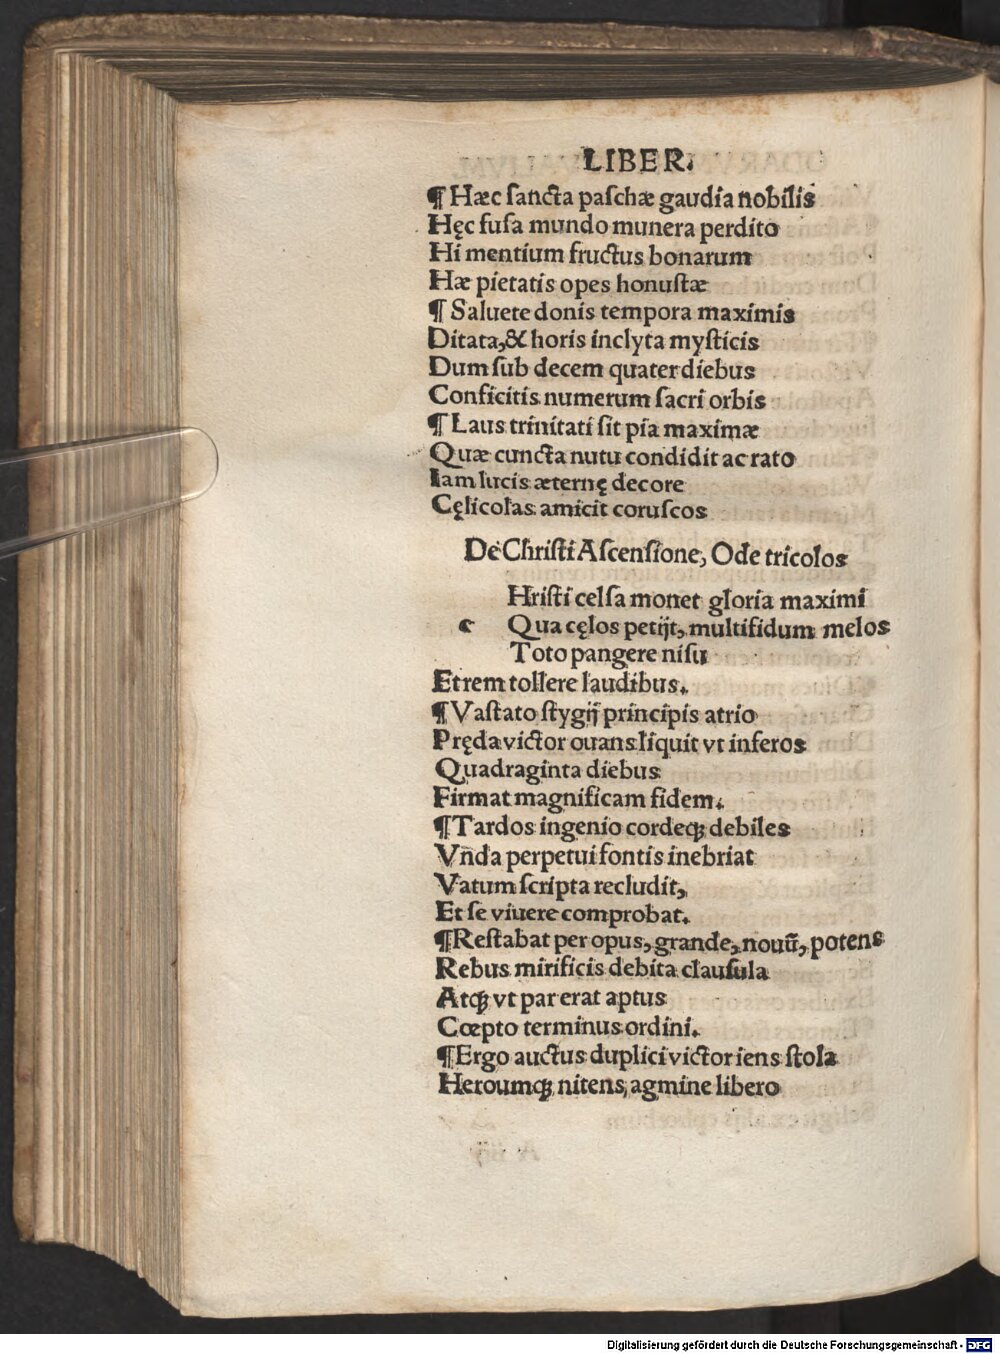 LIBER.
¶ Hæc ſancta paſchæ gaudia nobilis
Hęc fuſa mundo munera perdito
Hi mentium fructus bonarum
Hæ pietatis opes honuſtæ
¶ Saluete donis tempora maximis
Ditata,& horis inclyta myſticis
Dum ſub decem quater diebus
Conficitis numerum ſacri orbis
¶ Laus trinitati ſit pia maximæ
Quæ cuncta nutu condidit ac rato
Iam lucis æternę decore
Cęlicolas amicit coruſcos
De Chriſti Aſcenſione, Ode tricolos
Hriſti celſa monet gloria maximi
c Qua cęlos petijt, multifidum melos
Toto pangere niſu
Et rem tollere laudibus.
¶ Vaſtato ſtygij principis atrio
Pręda victor ouans liquit vt inferos
Quadraginta diebus
Firmat magnificam fidem.
¶ Tardos ingenio cordeqꝫ debiles
Vnda perpetui fontis inebriat
Vatum ſcripta recludit,
Et ſe viuere comprobat.
¶ Reſtabat per opus, grande, nouū, potens
Rebus mirificis debita clauſula
Atqꝫ vt par erat aptus
Cœpto terminus ordini.
¶ Ergo auctus duplici victor iens ſtola
Heroumqꝫ nitens, agmine libero
Digitalisierung gefördert durch die Deutsche Forschungsgemeinschaft - DFG